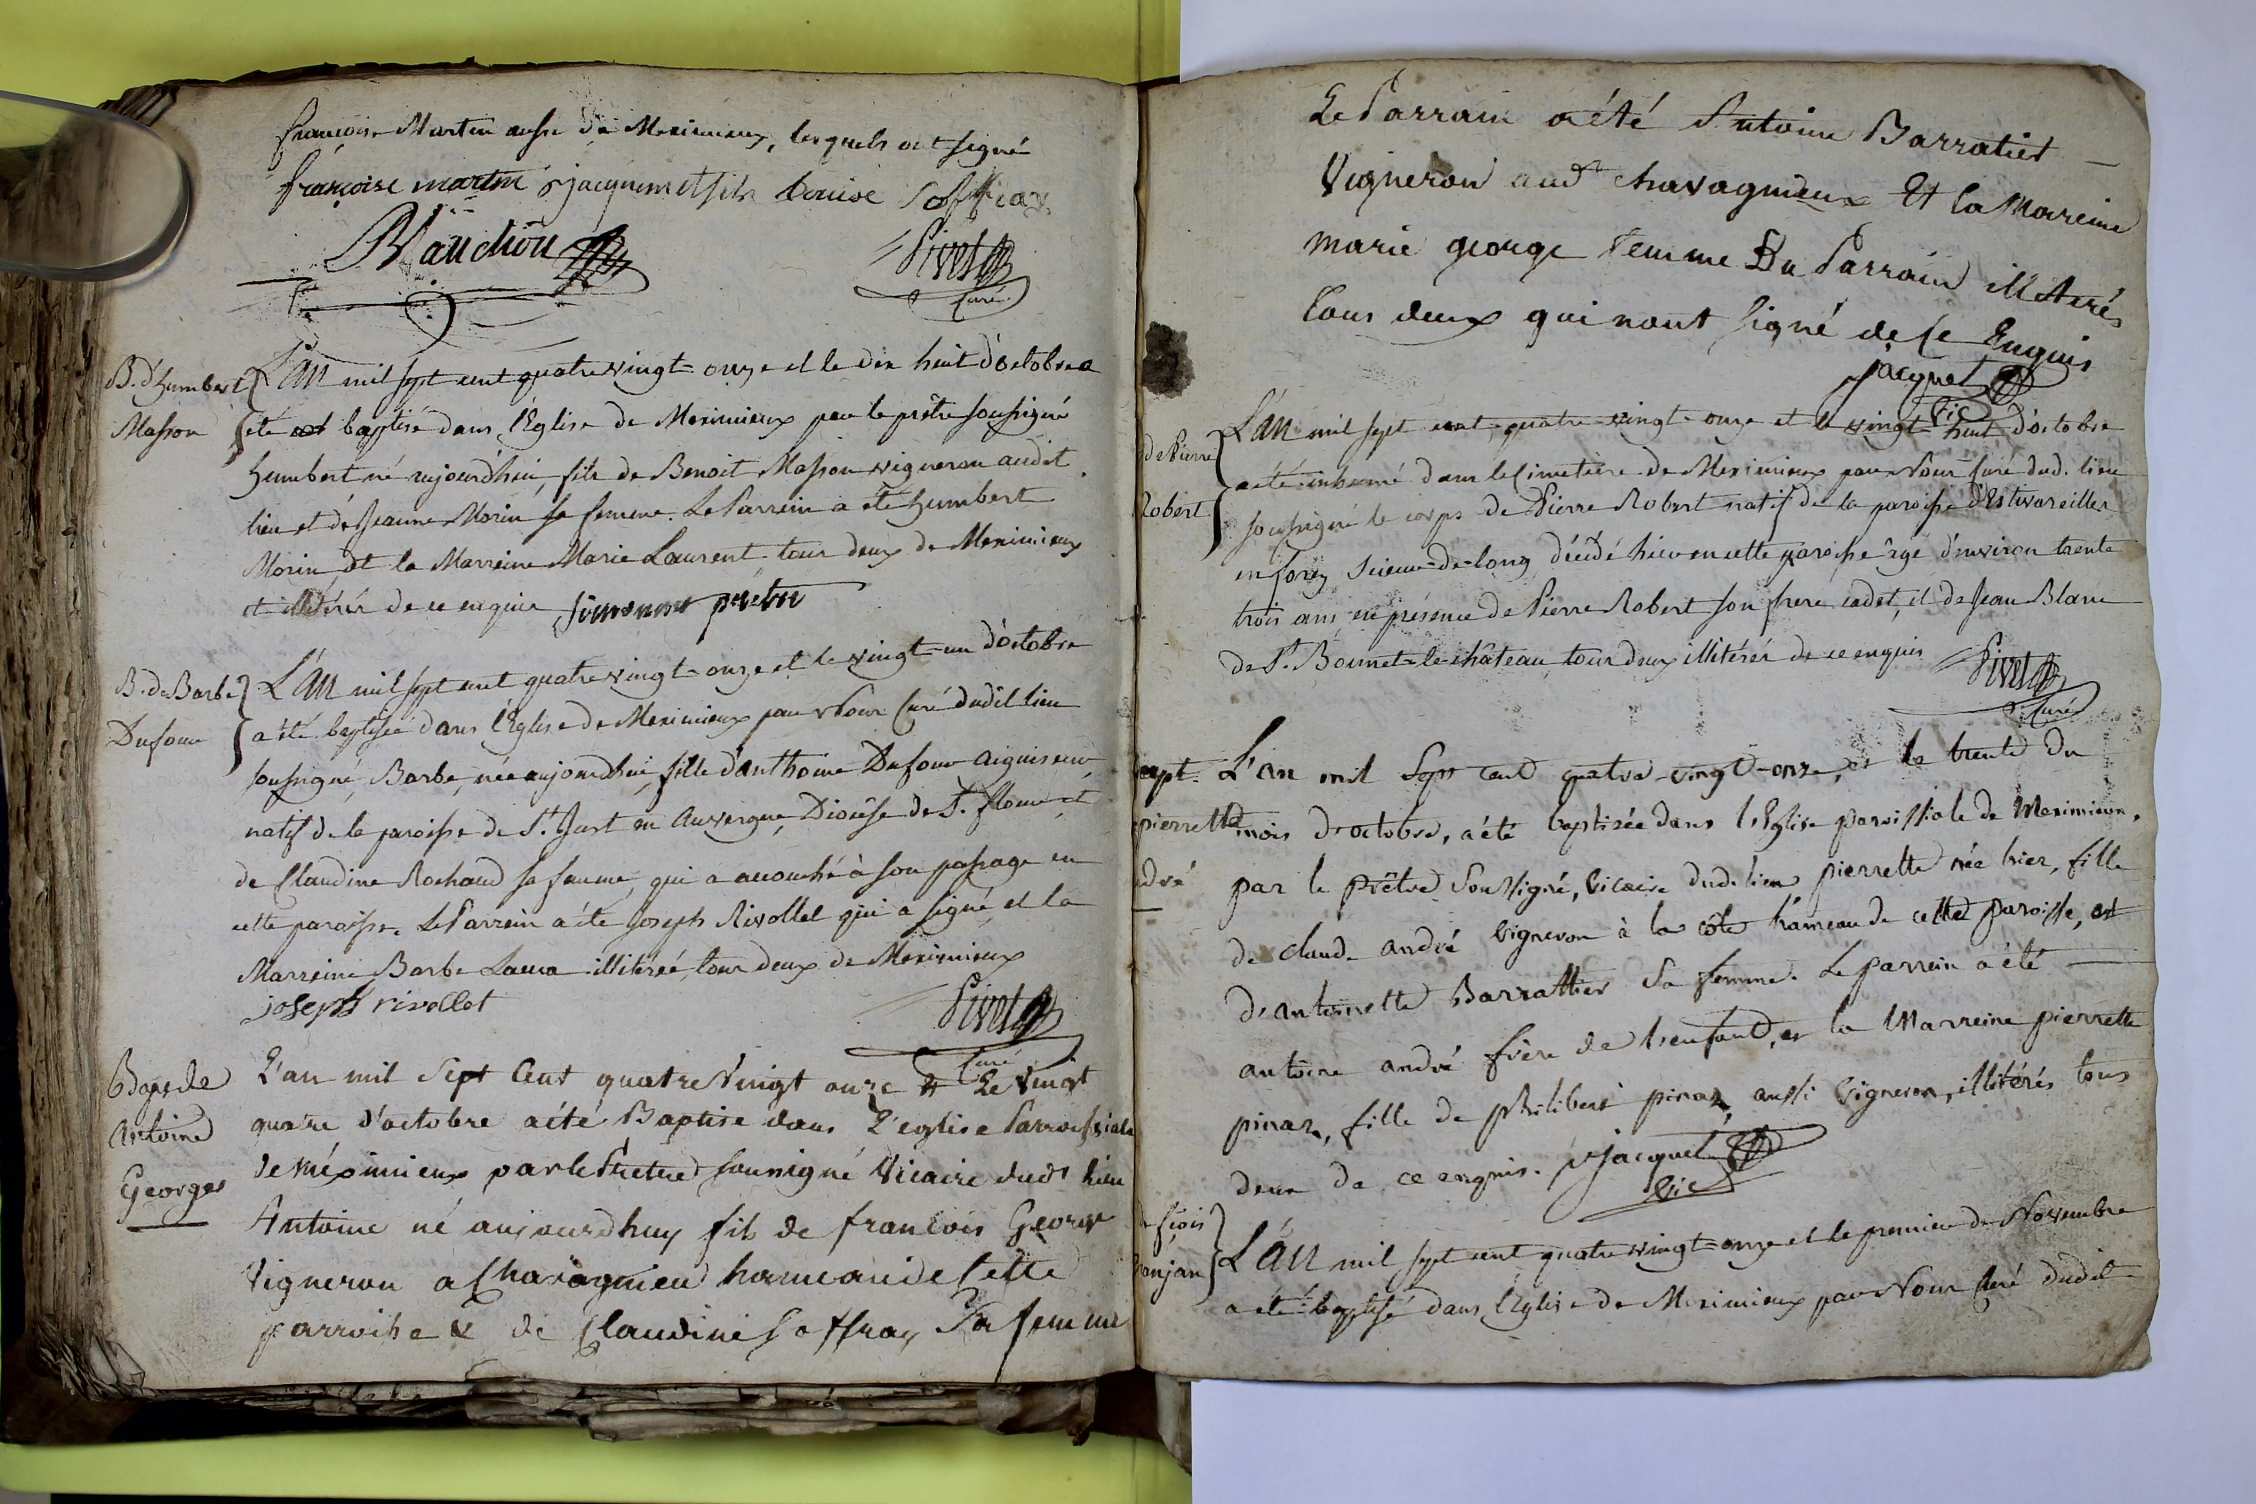 françoise Martin aussi de Meximieux, lesquels ont signé
françoise martin jacquemet fils Louise Soffray
Blanchon
Pivet
curé
B. d'humbert
Masson
L'An mil sept cent quatre vingt-onze et le dix huit d'octobre a
été baptisé dans l'Eglise de Meximieux par le prêtre soussigné
humbert né aujourd'hui, fils de Benoit Masson vigneron audit
lieu et de Jeanne Morin sa femme. Le Parrein a été humbert
Morin et la Marreine Marie Laurent tous deux de Meximieux
et illitérés de ce enquis prêtre
B. de Barbe
Dufour
L'An mil sept cent quatre vingt-onze et le vingt-un d'octobre
a été baptisée dans l'Eglise de Meximieux par Nous Curé dudit lieu
soussigné, Barbe, née aujourdhui, fille d'anthoine Dufour aiguiseur
natif de la paroisse de St. Just en Auvergne, Diocèse de St. flour et
de Claudine Rochaud sa femme, qui a accouché à son passage en
cette paroisse. Le Parrein a été joseph Rivollet qui a signé, et la
Marreine Barbe Laura illitérée, tous deux de Meximieux
joseph rivollet
Pivet
Curé
Bapt de
Antoine
George
L'an mil Sept Cent quatre Vingt onze et Le Vingt
quatre d'octobre a été Baptise dans L'eglise Parroissiale
de Méximieux par le Prêtre soussigné Vicaire dudt lieu
Antoine né aujourdhuy fils de francois George
Vigneron a Chavagnieu hameau de Cette
parroisse & de Claudine Soffray Sa femme
Le Parrain a été Antoine Barratier
Vigneron audt chavagnieux Et la Mareine
marie george femme Du Parrain illiterés
tous deux qui nont signé de ce Enquis
jacquet
Vic
de Pierre
Robert
L'An mil sept cent quatre-vingt-onze et le vingt-huit d'octobre
a été inhumé dans le Cimetière de Meximieux par Nous Curé dud. lieu
soussigné le corps de Pierre Robert natif de la paroisse d'Estivareilles
en forez scieur-de-long décédé hier en cette paroisse âgé d'environ trente
trois ans en présence de Pierre Robert son frere cadet, et de Jean Blanc
de St. Bonnet-le-château, tous deux illitérés de ce enquis
Pivet
Curé
bapt.
pierrette
andré
L'an mil Sept cent quatre-vingt-onze, et le trente du
mois d'octobre, a été baptisée dans l'Eglise paroissiale de Meximieux,
par le prêtre Soussigné, vicaire dud. lieu pierrette née hier, fille
de claude andré vigneron à la côte hameau de cette paroisse, et
d'antoinette Barrattier Sa femme. Le parrein a été
antoine andré frère de l'enfant, et la Marreine pierrette
pinaz, fille de philibert pinaz, aussi vigneron, illitérés tous
deux de ce enquis. jacquet
Vic
de fçois
L'An mil sept cent quatre vingt-onze et le premier de Novembre
a été baptisé dans l'Eglise de Meximieux par Nous Curé dudit